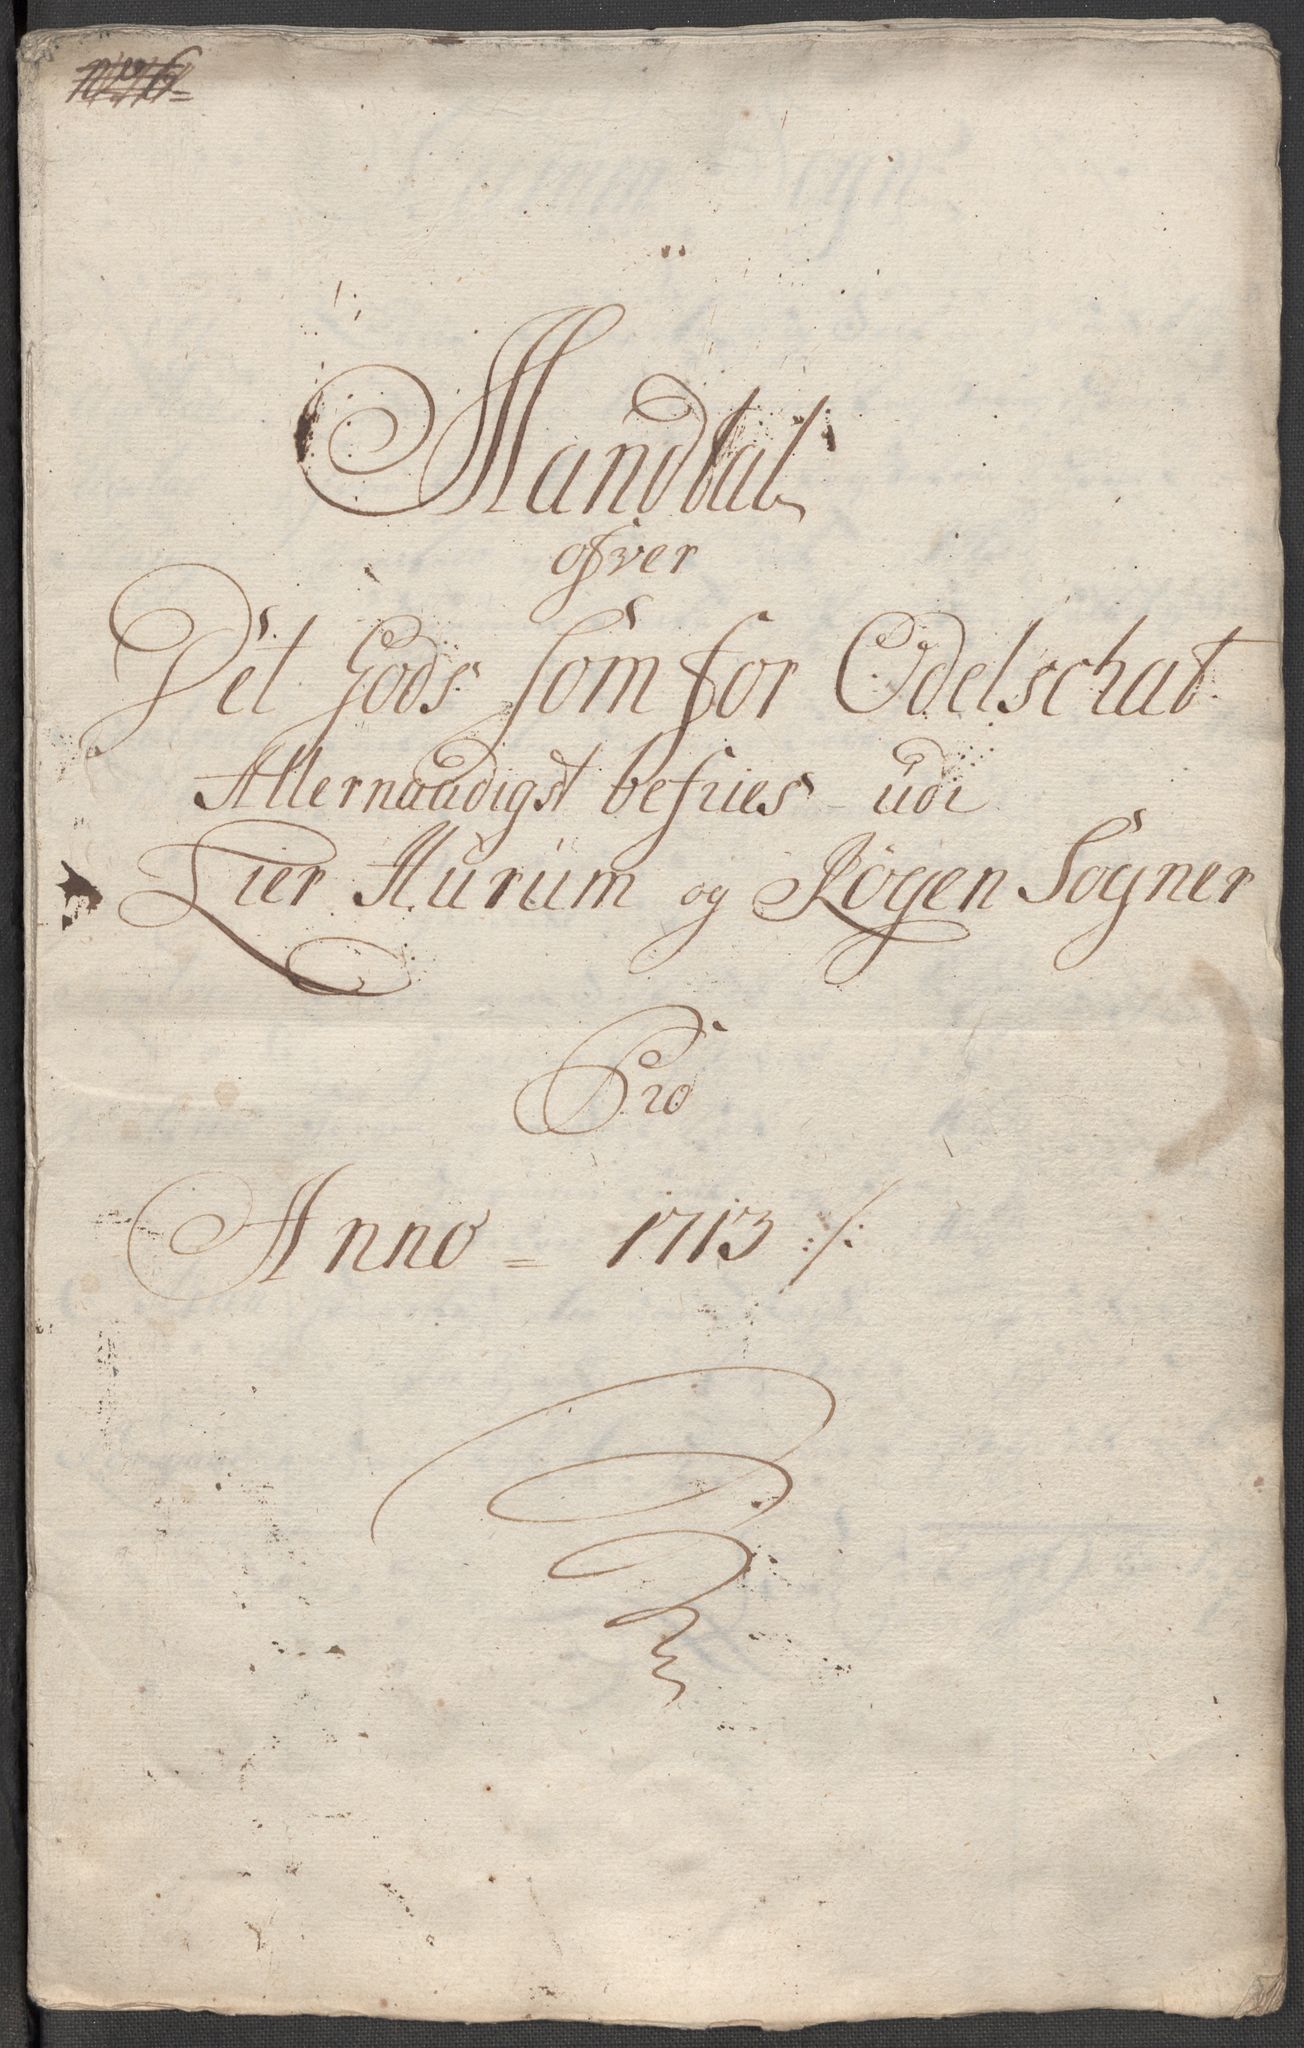 Mandtal
ofver
Det Gods som for Odelschat
Allernaadigst befries udi
Lier Hurum og Røgen Sogner
Pro
Anno = 1713 /: